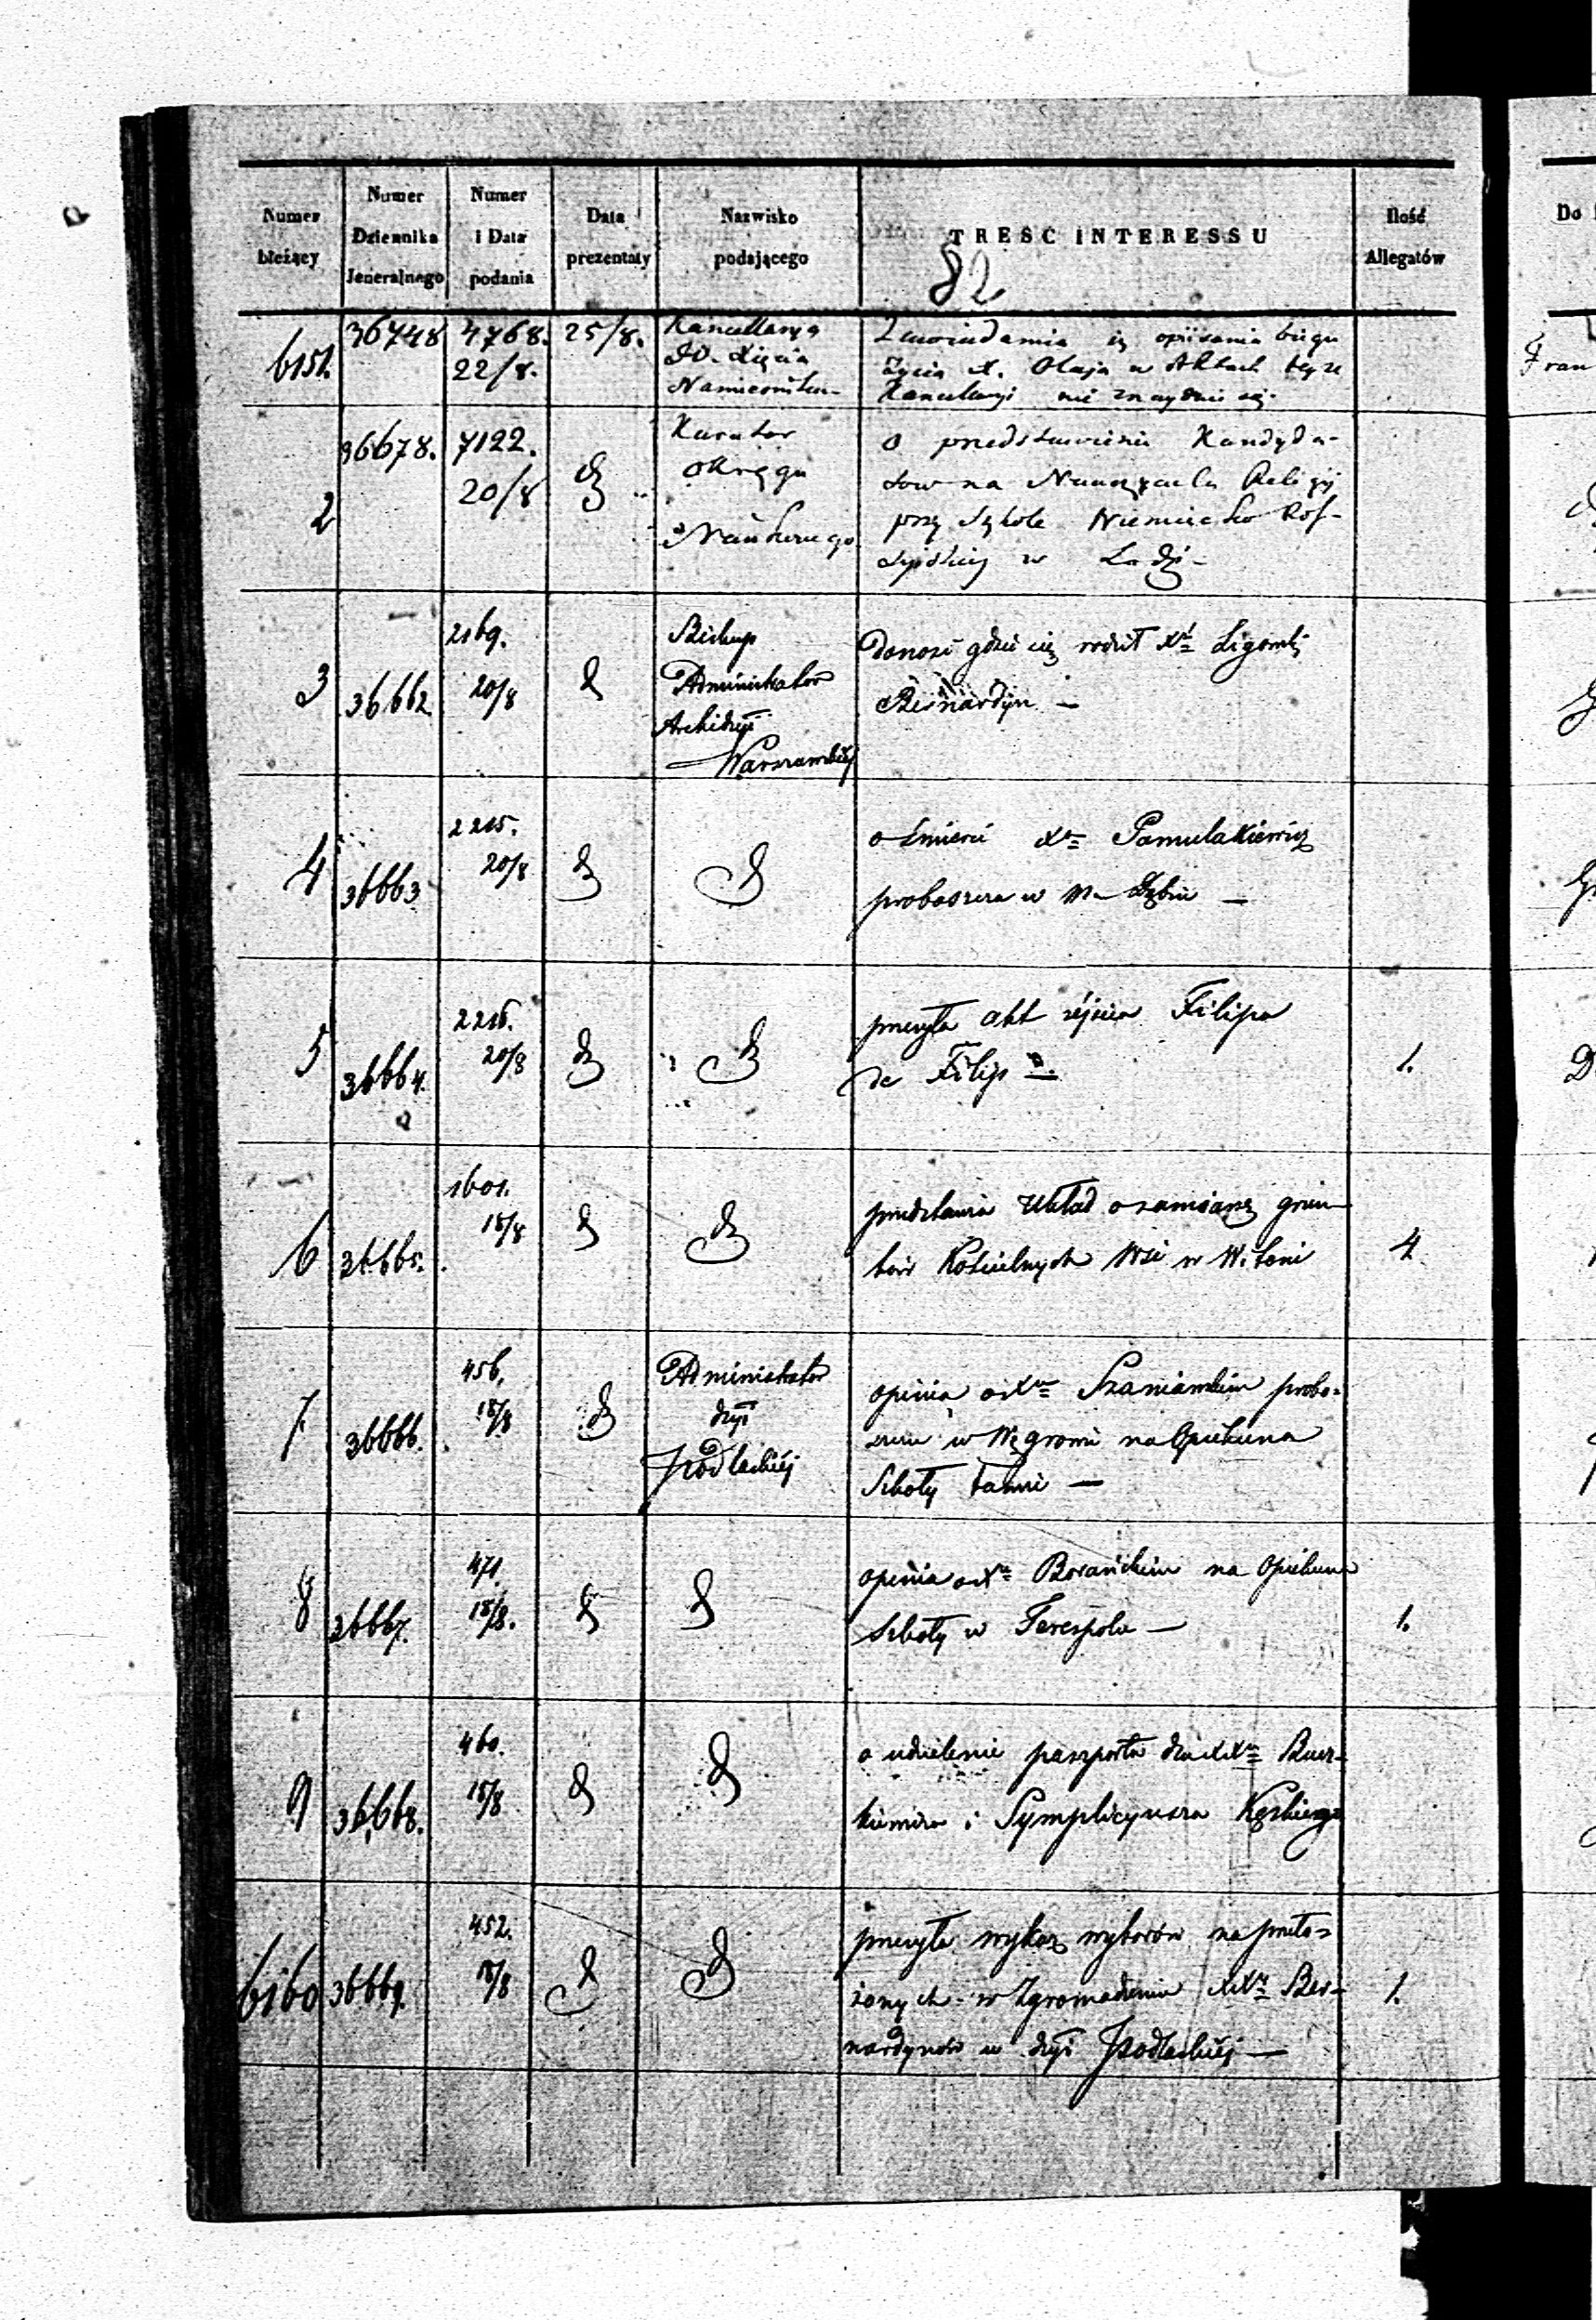 Numer bieżący | Numer Dziennika Jeneralnego | Numer i Data podania | Data prezentaty | Nazwisko podającego | TREŚĆ INTERESSU | Ilość Allegatów
Do
82
6151. 36748 4768. 22/8. 25/8.
Kancellarya
JO. Xięcia
Namiestnika-
Zawiadamia iż opisania biegu
życia X. Olaja w Aktach tejże
Kancellaryi nie znayduie się.
Fran
2 36678. 7122. 20/8 d
Kurator
Okręgu
Naukowego
o przedstawienie Kandyda-
tow na Nauczyciela Religij
przy Szkole Niemiecko Ros-
syiskiej w Łodzi-
3 36662 2169. 20/8 d
Biskup
Administrator
Archidyi
Warszawskiéj
donosi gdzie się rodził Xd
Bernardyn —
4 36663 2215. 20/8 d d
o śmierci Xa Pamulakiewicz
proboszcza w M. Dąbiu —
5 36664. 2216. 20/8 d d
przesyła akt zéjścia Filipa
de Filip
1.
D
6 36665. 1601. 18/8 d d
przedstawia Układ o zamianę grun-
tów Kościelnych Wsi w Witoni
4
7 36666. 456. 18/8 d
Administrator
dyi
Podlaskiéj
opinia o Xu Szaniawskim probo-
szczu w Węgrowie na Opiekuna
Szkoły tamże —
8 36667. 471. 18/8. d d
opinia o Xu na Opiekuna
Szkoły w Terespolu —
1.
9 36668. 460. 18/8 d d
o udzielenie paszportu dla XXn
i Symplicyusza
6160 36669. 452. 18/8 d d
przesyła wykaz wyborów na przeło-
żonych w Zgromadzeniu XXn Ber-
nardynów w dyi Podlaskiéj —
1.